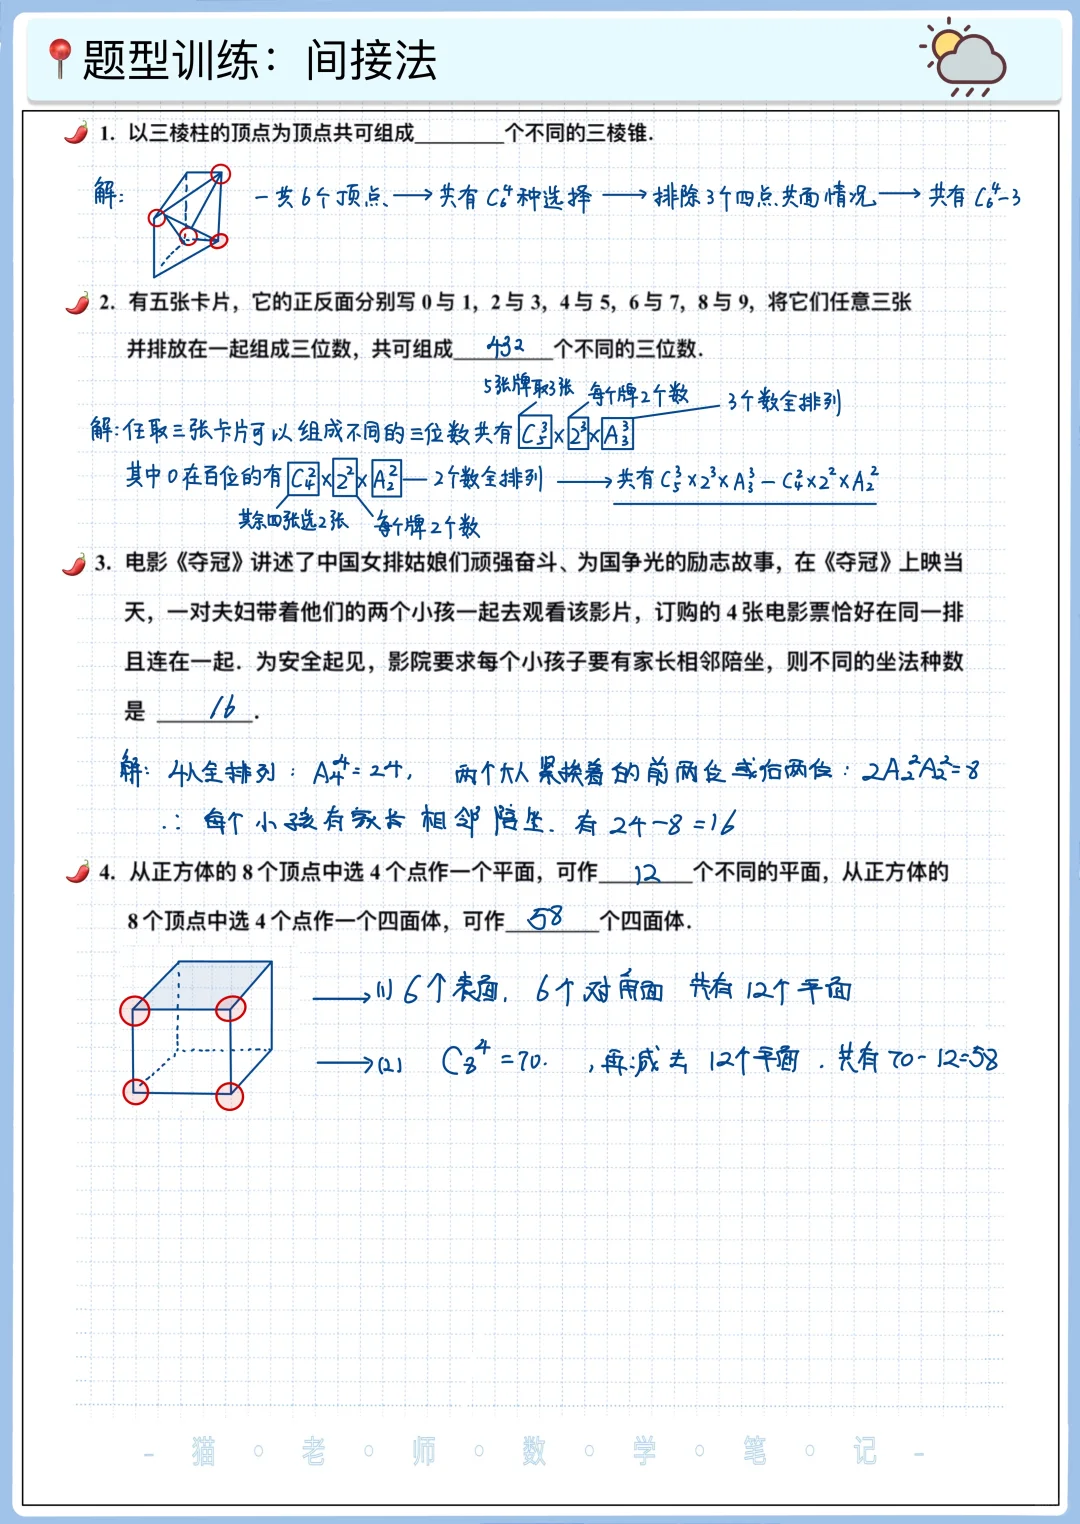 题型训练：间接法
1. 以三棱柱的顶点为顶点共可组成________个不同的三棱锥.
解: 一共6个顶点 → 共有 C₆⁴种选择 → 排除3个四点共面情况 → 共有 C₆⁴-3
2. 有五张卡片，它的正反面分别写 0 与 1，2 与 3，4 与 5，6 与 7，8 与 9，将它们任意三张
并排放在一起组成三位数，共可组成 432 个不同的三位数.
5张牌取3张 每个牌2个数 3个数全排列
解:任取三张卡片可以组成不同的三位数共有 C₅³×2³×A₃³
其中0在百位的有 C₄²×2²×A₂² — 2个数全排列 → 共有 C₅³×2³×A₃³ - C₄²×2²×A₂²
其余四张选2张 每个牌2个数
3. 电影《夺冠》讲述了中国女排姑娘们顽强奋斗、为国争光的励志故事，在《夺冠》上映当
天，一对夫妇带着他们的两个小孩一起去观看该影片，订购的 4 张电影票恰好在同一排
且连在一起．为安全起见，影院要求每个小孩子要有家长相邻陪坐，则不同的坐法种数
是 16 .
解: 4人全排列: A₄⁴=24, 两个大人紧挨着的前两位或后两位: 2A₂²A₂²=8
∴ 每个小孩有家长相邻陪坐. 有 24-8=16
4. 从正方体的 8 个顶点中选 4 个点作一个平面，可作 12 个不同的平面，从正方体的
8 个顶点中选 4 个点作一个四面体，可作 58 个四面体.
→ (1) 6个表面, 6个对角面 共有12个平面
→ (2) C₈⁴=70. ,再减去 12个平面 . 共有70-12=58
- 猫 · 老 · 师 · 数 · 学 · 笔 · 记 -